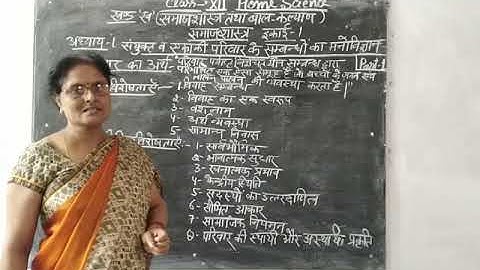 Class- XII Home Science
खण्ड 'ख' (समाजशास्त्र तथा बाल-कल्याण)
समाजशास्त्र इकाई-1
अध्याय-1 संयुक्त व एकाकी परिवार के सम्बन्धों का मनोविज्ञान
परिवार पर्याप्त निश्चित यौन सम्बन्ध द्वारा
परिभाषित एक ऐसा समूह है जो बच्चों के जन्म एवं
की व्यवस्था करता है।
Part-1
1- विवाह सम्बन्ध
2- विवाह का एक स्वरूप
3- वंश नाम
4- अर्थ व्यवस्था
5- सामान्य निवास
विशेषताएँ:- 1- सार्वभौमिक
2- भावात्मक सुधार
3- रचनात्मक प्रभाव
4- केन्द्रीय स्थिति
5- सदस्यों का उत्तरदायित्व
6- सीमित आकार
7- सामाजिक नियमन
8- परिवार की स्थायी और अस्थायी प्रकृति